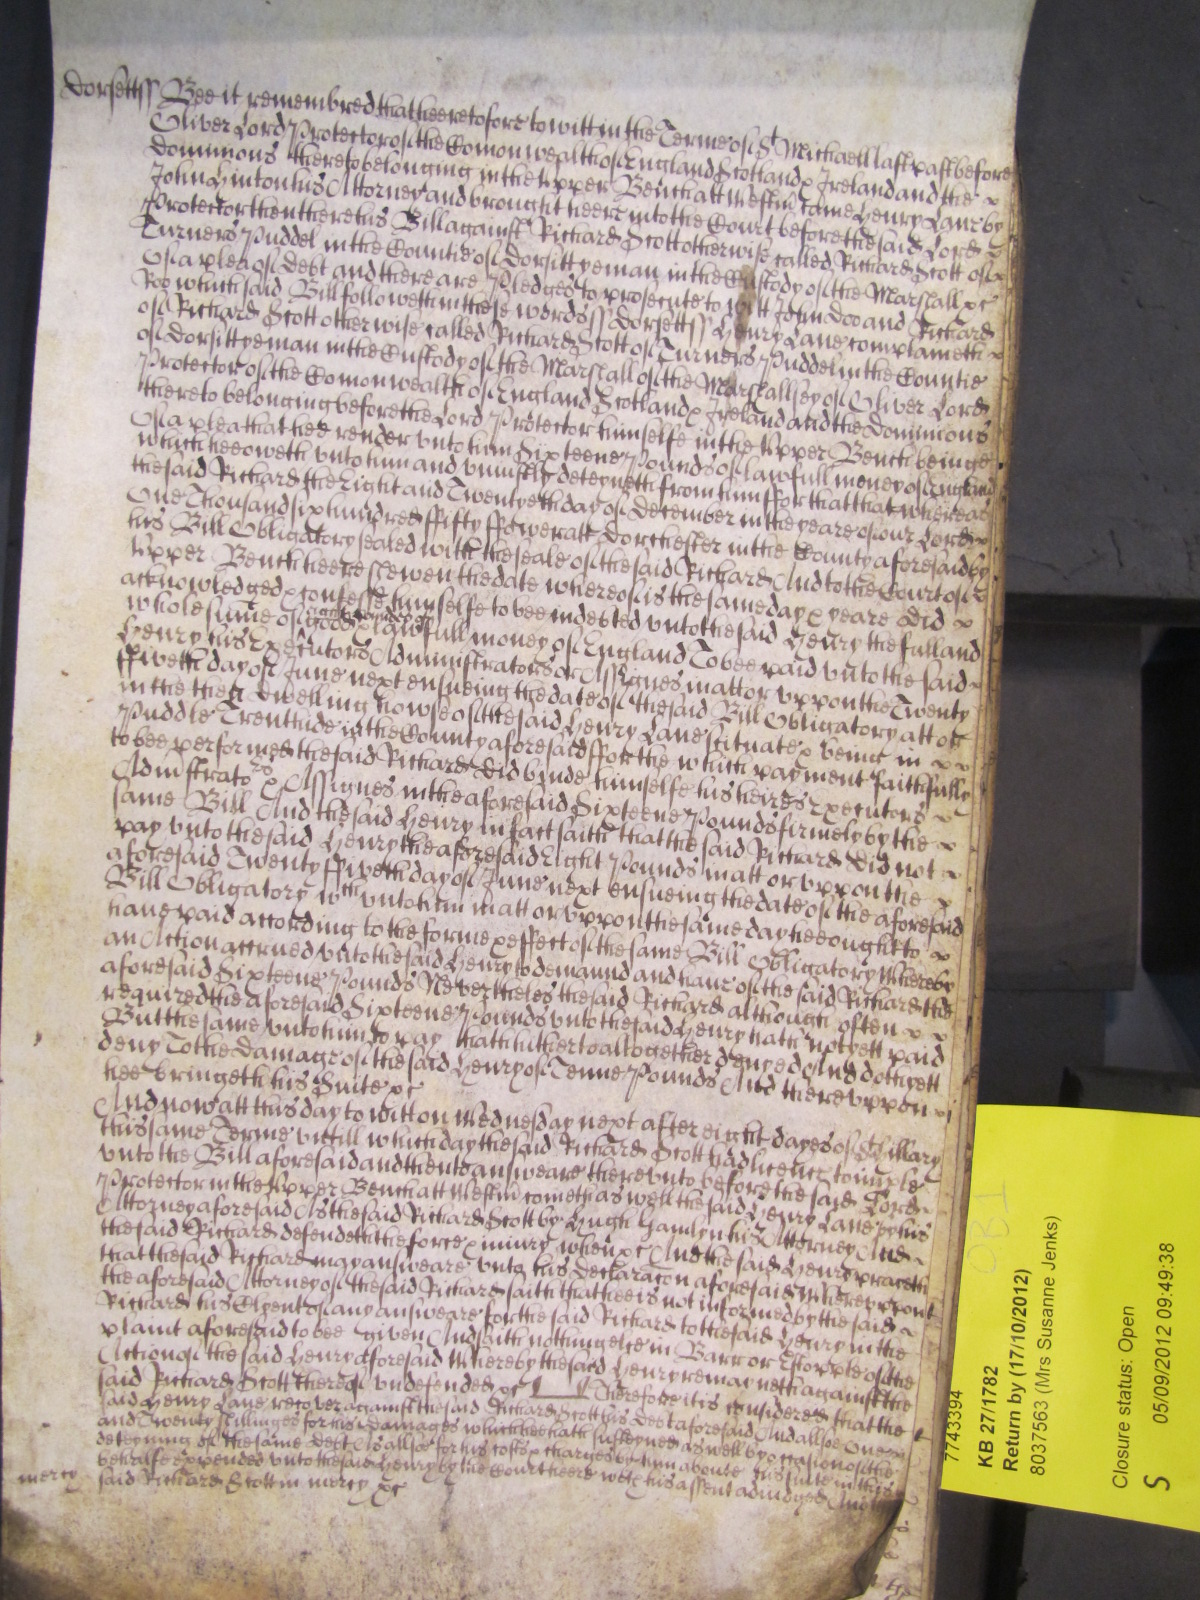 Dorsett ss Bee it remembred that heeretofore to witt in the Terme of St Michaell last past before
Oliver Lord Protector of the Comonwealth of England Scotland & Ireland and the
Dominions thereto belonging in the Upper Bench att Westm came Henry Lane by
John Hinton his Attorney and brought heere into the Court before the said Lord
Protector then there his Bill against Richard Scott otherwise called Richard Scott of
Turners Puddel in the Countie of Dorsitt yeman in the Custody of the Marshall &c
Of a plea of Debt and there are Pledges to prosecute to witt John Doo and Richard
Roo which said Bill followeth in these words ss Dorsett ss Henry Lane complaineth
of Richard Scott otherwise called Richard Scott of Turners Puddel in the Countie
of Dorsitt yeman in the Custody of the Marshall of the Marshallsey of Oliver Lord
Protector of the Comonwealth of England Scotland & Ireland and the Dominions
thereto belonging before the Lord Protector himselfe in the Upper Bench beinge
Of a plea that hee render unto him Sixteene Pounds of lawfull money of England
which hee oweth unto him and uniustly deteyneth from him ffor that that whereas
the said Richard the Eight and Twentyeth day of December in the yeare of our Lord
One Thousand six hundred ffifty ffower att Dorchester in the County aforesaid by
his Bill Obligatory sealed with the seale of the said Richard And to the Court of the
Upper Bench heere shewen the date whereof is the same day & yeare did
acknowledged & confesse himselfe to bee indebted unto the said Henry the full and
whole sume of good & lawfull money of England To bee paid unto the said
Henry his Executors Administrators or Assignes in att or uppon the Twenty
ffiveth day of June next ensueing the date of the said Bill Obligatory att or
in the then dwelling howse of the said Henry Lane scituate & being in
Puddle Trenthide in the County aforesaid ffor the which payment faithfully
to bee performed the said Richard did binde himselfe his heires Executors
Adminstrators & Assignes in the aforesaid Sixteene Pounds firmely by the
same Bill And the said Henry in fact saith that the said Richard did not
pay unto the said Henry the aforesaid Eight Pounds in att or uppon the
aforesaid Twenty ffiveth day of June next ensueing the date of the aforesaid
Bill Obligatory wch unto him in att or uppon the same day hee ought to
have paid according to the forme & effect of the same Bill Obligatory Whereby
an Action accrued unto the said Henry to demaund and have of the said Richard the
aforesaid Sixteene Pounds Neverthelesse the said Richard although often
required the aforesaid Sixteene Pounds unto the said Henry hath not yett paid
But the same unto him to pay hath hitherto altogether denyed And doth yett
deny To the Damage of the said Henry of Tenne Pounds And thereuppon
hee bringeth his Suite &c
And now att this day to witt on Wednesday next after eight dayes of St Hillary
this same Terme untill which day the said Richard Scott had licence to imple
unto the Bill aforesaid and then to answeare thereunto before the said Lord
Protector in the Upper Bench att Westm cometh as well the said Henry Lane by his
Attorney aforesaid As the said Richard Scott by Hugh Hamlyn his Attorney And
the said Richard defendeth the force & iniury when &c And the said Henry prayeth
that the said Richard may answeare unto his Declaracon aforesaid Whereuppon
the aforesaid Attorney of the said Richard saith that hee is not informed by the said
Richard his Clyent of any answeare for the said Richard to the said Henry in the
plaint aforesaid to bee given And saith nothing else in Barr or Estopple of the
Action of the said Henry aforesaid Whereby the said Henry remayneth against the
said Richard Scott thereof undefended &c Therefore it is considered that the
said Henry Lane recover against the said Richard Scott his Debt aforesaid And allsoe One
and Twenty shillinges for his Damages which hee hath susteyned as well by occasion of the
deteyning of the same Debt As allsoe for his costs & charges by him aboute his suite in this
behalfe expended unto the said Henry by the Court heere with his assent adiudged And the
mercy said Richard Scott in mercy &c
OB1
7743394
KB 27/1782
Return by (17/10/2012)
8037563 (Mrs Susanne Jenks)
Closure status: Open
S 05/09/2012 09:49:38